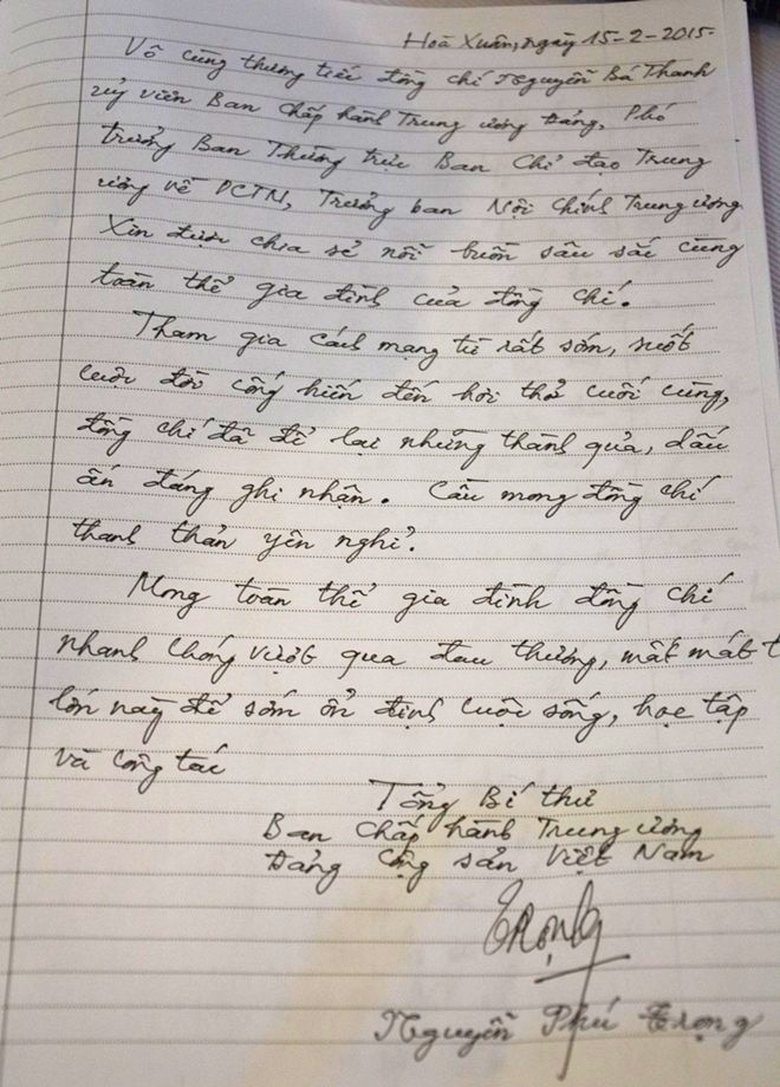 Hoà Xuân, ngày 15-2-2015.
Vô cùng thương tiếc đồng chí Nguyễn Bá Thanh
uỷ viên Ban chấp hành Trung ương Đảng, Phó
trưởng Ban Thường trực Ban Chỉ đạo Trung
ương về PCTN, Trưởng ban Nội chính Trung ương
Xin được chia sẻ nỗi buồn sâu sắc cùng
toàn thể gia đình của đồng chí.
Tham gia cách mạng từ rất sớm, suốt
cuộc đời cống hiến đến hơi thở cuối cùng,
đồng chí đã để lại những thành quả, dấu
ấn đáng ghi nhận. Cầu mong đồng chí
thanh thản yên nghỉ.
Mong toàn thể gia đình đồng chí
nhanh chóng vượt qua đau thương, mất mát t
lớn này để sớm ổn định cuộc sống, học tập
và công tác
Tổng Bí thư
Ban chấp hành Trung ương
Đảng cộng sản Việt Nam
Trọng
Nguyễn Phú Trọng